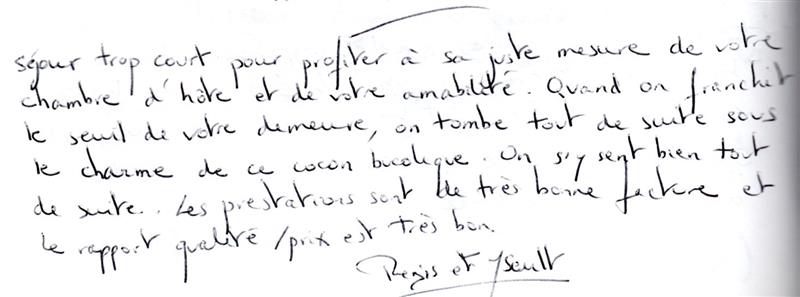 séjour trop court pour profiter à sa juste mesure de votre
chambre d'hôte et de votre amabilité. Quand on franchit
le seuil de votre demeure, on tombe tout de suite sous
le charme de ce cocon bucolique. On s'y sent bien tout
de suite.. Les prestations sont de très bonne facture et
le rapport qualité/prix est très bon.
Regis et Yseult